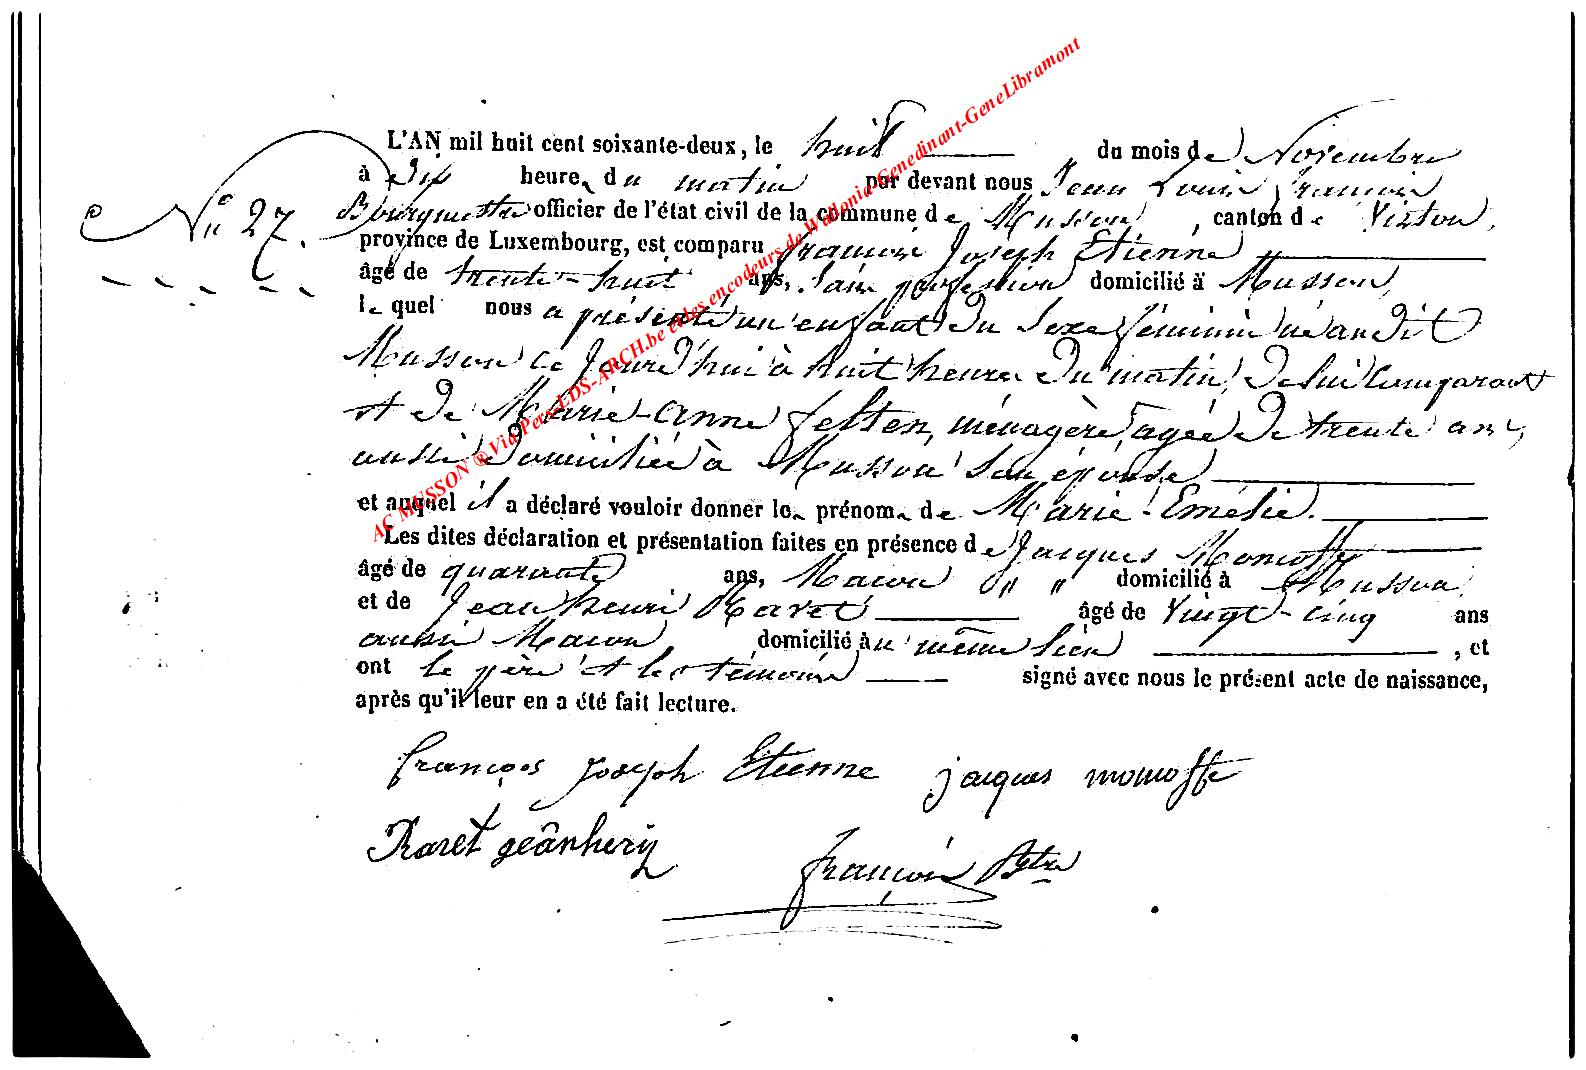 L'AN mil huit cent soixante-deux, le huit du mois de Novembre
à dix heures du matin par devant nous Jean Louis François
N° 27. Bourguignon officier de l'état civil de la commune de Musson, canton de Virton,
province de Luxembourg, est comparu François Joseph Etienne
âgé de trente-huit ans, sans profession domicilié à Musson,
lequel nous a présenté un enfant du sexe féminin né audit
Musson ce jourd'hui à huit heures du matin, de lui comparant
et de Marie-Anne Felten, ménagère, agée de trente ans,
aussi domiciliée à Musson son épouse
et auquel il a déclaré vouloir donner les prénoms de Marie Emélie.
Les dites déclaration et présentation faites en présence de Jacques Momoffe
âgé de quarante ans, Macon " " domicilié à Musson
et de Jean henri Raret âgé de Vingt-cinq ans
aussi Macon domicilié au même lieu, et
ont le père et les témoins signé avec nous le présent acte de naissance,
après qu'il leur en a été fait lecture.
françois joseph Etienne jacques momoffe
Raret geânhery
françois
AC MUSSON ® Via Pers-LDS-ARCH.be et les encodeurs de Wallonia-Genedinant-GeneLibramont